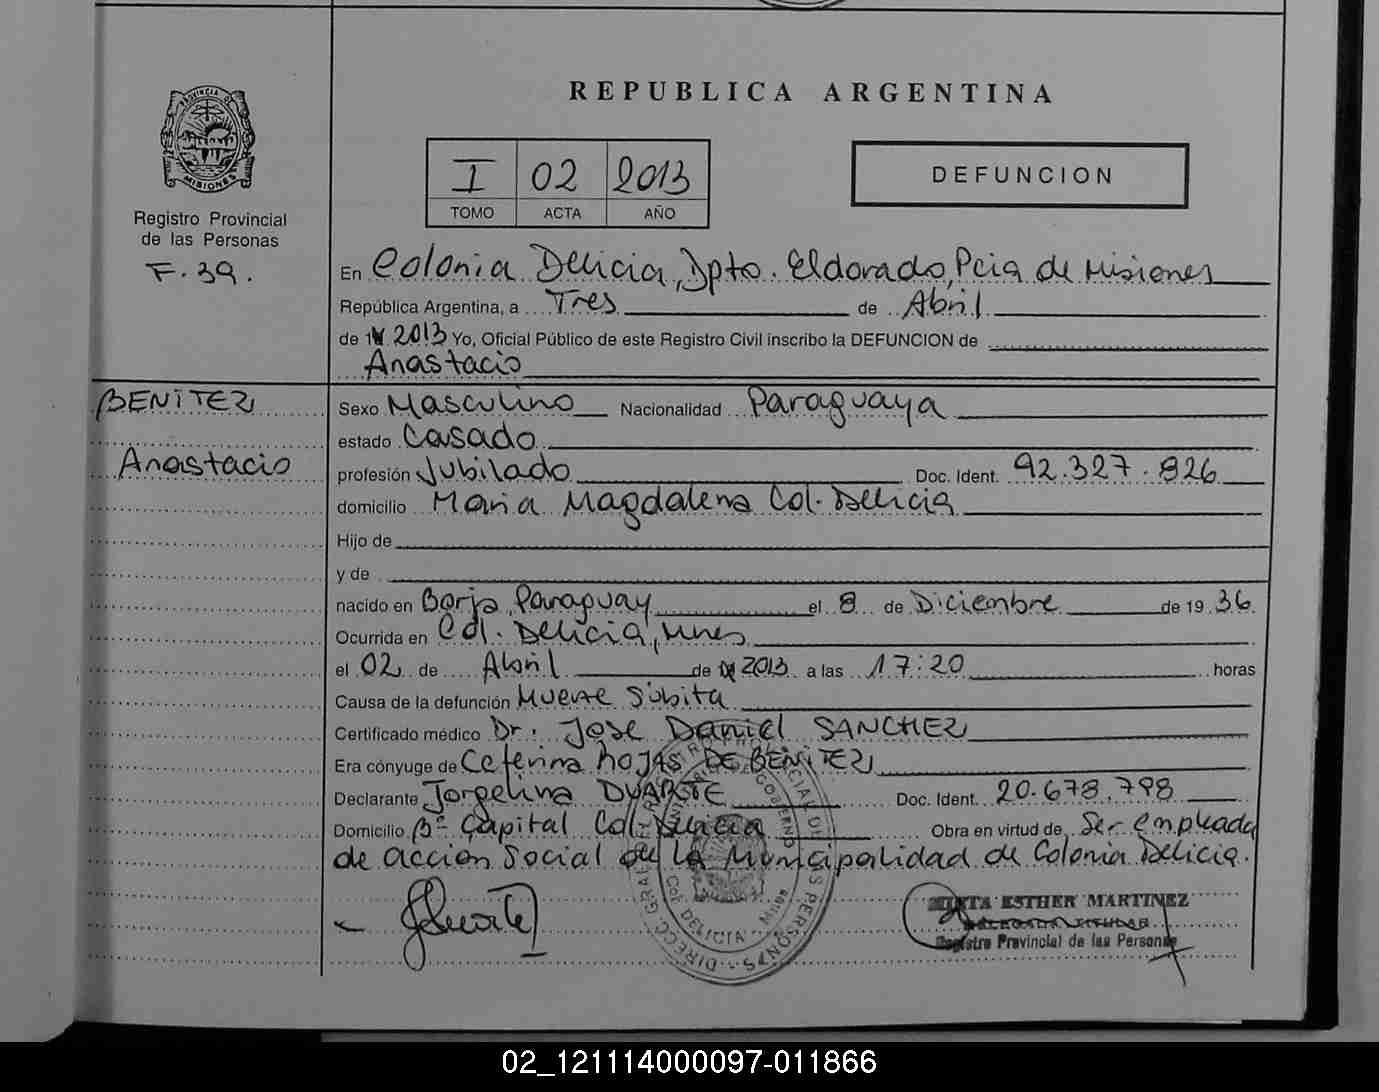 REPUBLICA ARGENTINA
PROVINCIA DE
MISIONES
Registro Provincial
de las Personas
F. 39.
I 02 2013
TOMO ACTA AÑO
DEFUNCION
En Colonia Delicia, Dpto. Eldorado, Pcia de Misiones
República Argentina, a Tres de Abril
de 2013 Yo, Oficial Público de este Registro Civil inscribo la DEFUNCION de
Anastacio
BENITEZ
Anastacio
Sexo Masculino Nacionalidad Paraguaya
estado Casado
profesión Jubilado Doc. Ident. 92.327.826
domicilio Maria Magdalena Col. Delicia
Hijo de
y de
nacido en Borja, Paraguay el 8 de Diciembre de 19 36.
Ocurrida en Col. Delicia, Mnes
el 02 de Abril de 2013 a las 17:20 horas
Causa de la defunción Muerte Súbita
Certificado médico Dr. Jose Daniel SANCHEZ
Era cónyuge de Ceferina ROJAS DE BENITEZ
Declarante Jorgelina DUARTE Doc. Ident. 20.678.798
Domicilio Bº Capital Col. Delicia Obra en virtud de Ser empleada
de acción Social de la Municipalidad de Colonia Delicia.
Col. DELICIA - Mnes
MIRTA ESTHER MARTINEZ
DELEGADA TITULAR
Registro Provincial de las Personas
02_121114000097-011866